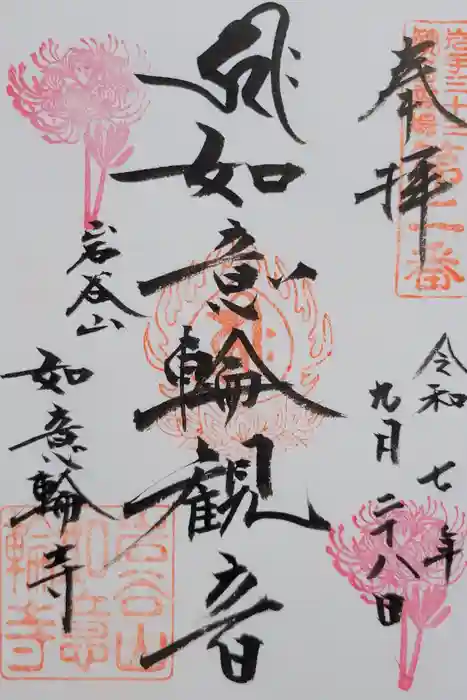 奉拝
令和七年
九月二十八日
如意輪観音
岩谷山
如意輪寺
岩谷山
如意
輪寺